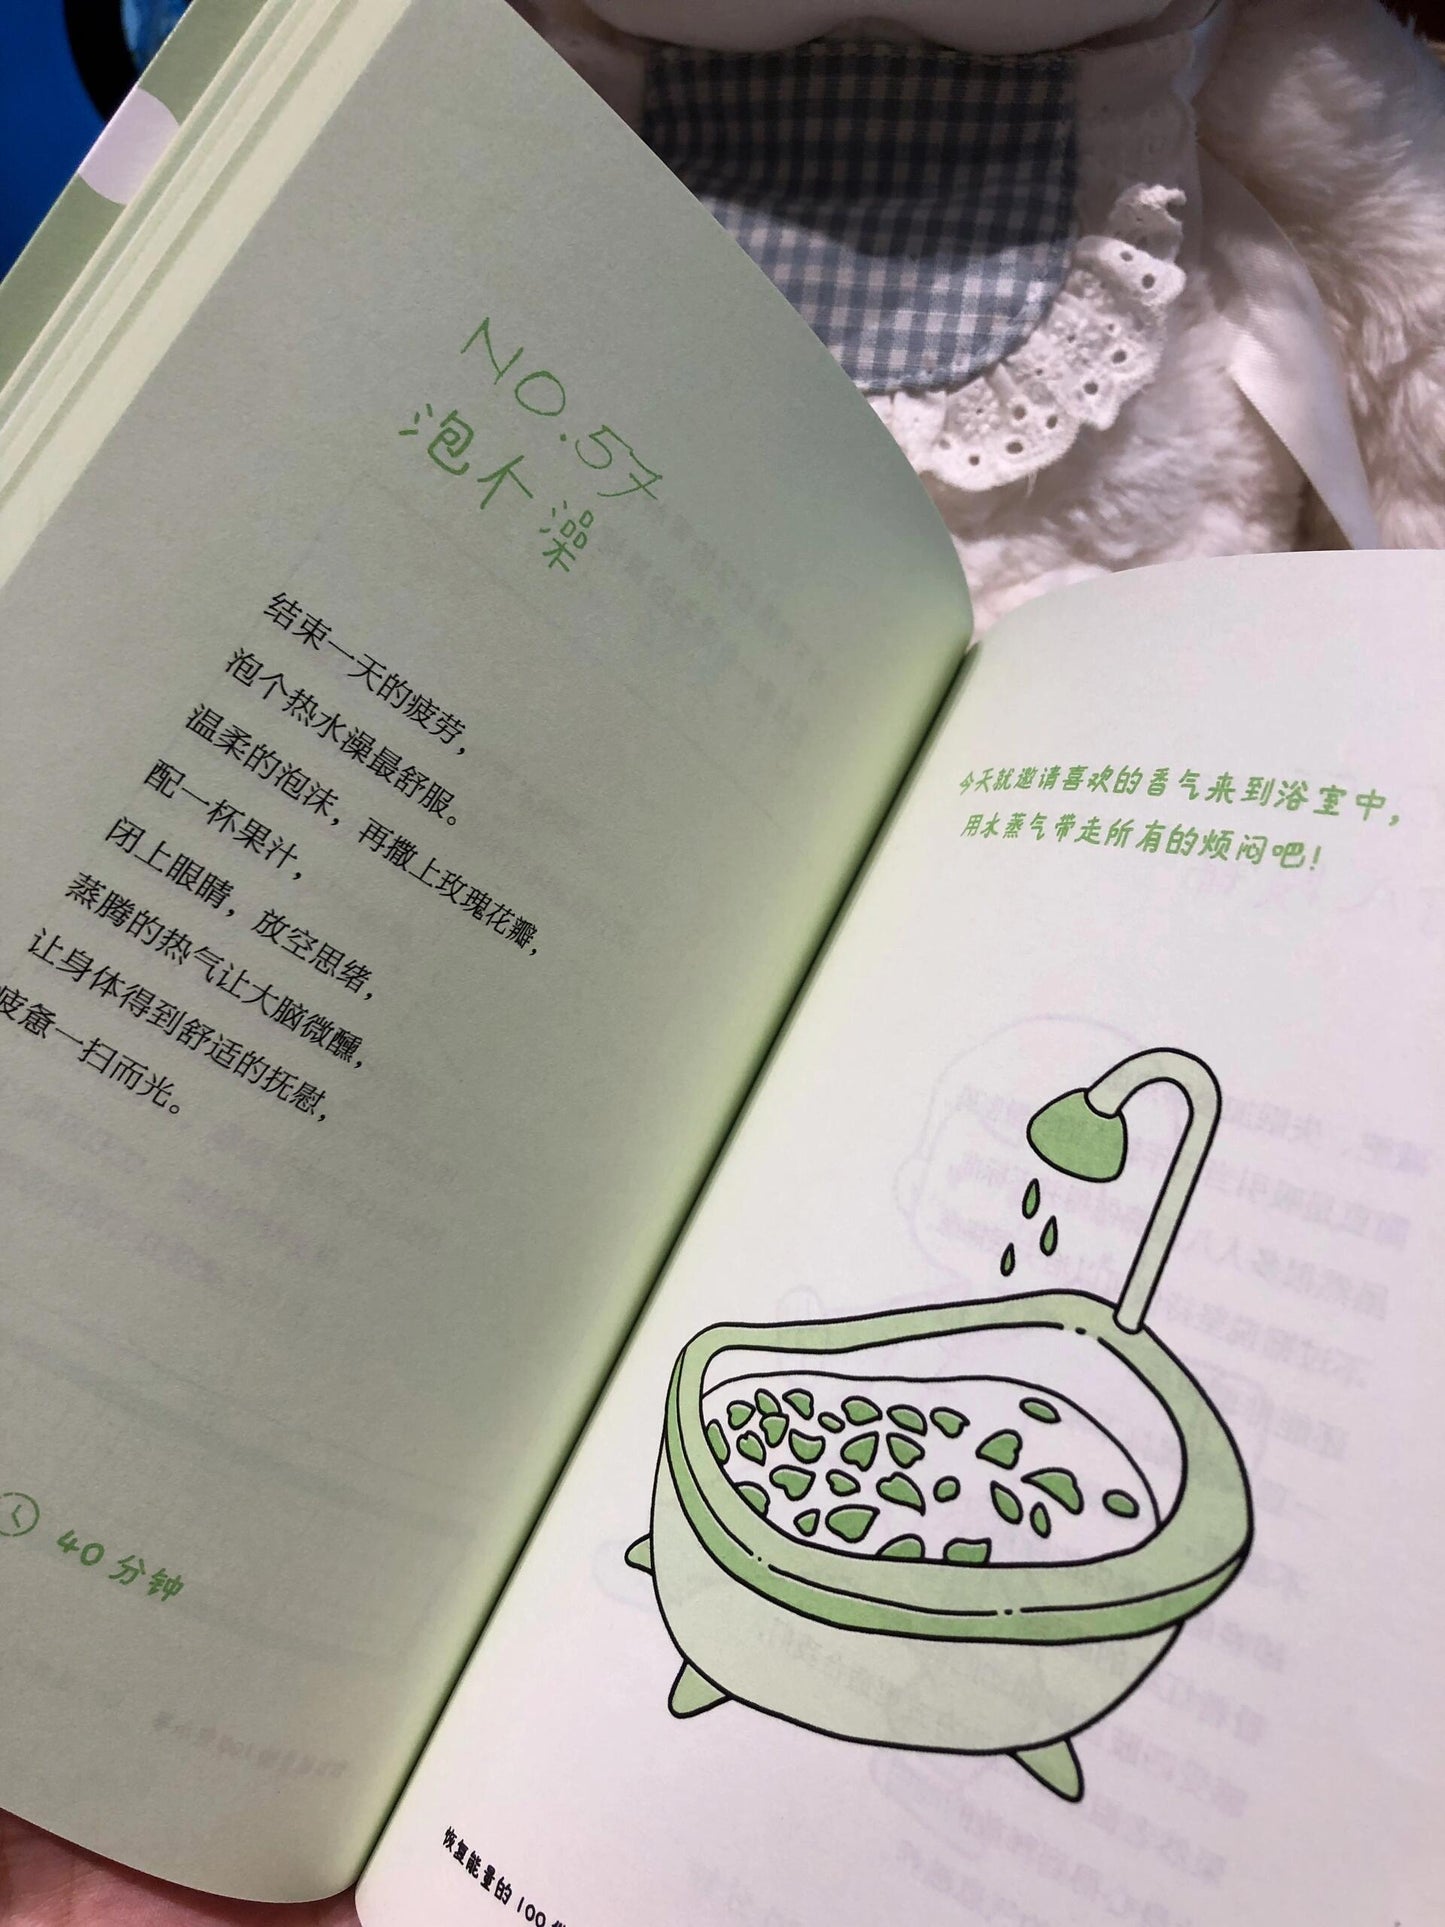 NO.57
泡个澡
结束一天的疲劳，
泡个热水澡最舒服。
温柔的泡沫，再撒上玫瑰花瓣，
配一杯果汁，
闭上眼睛，放空思绪，
蒸腾的热气让大脑微醺，
让身体得到舒适的抚慰，
疲惫一扫而光。
40分钟
今天就邀请喜欢的香气来到浴室中，
用水蒸气带走所有的烦闷吧！
恢复能量的100